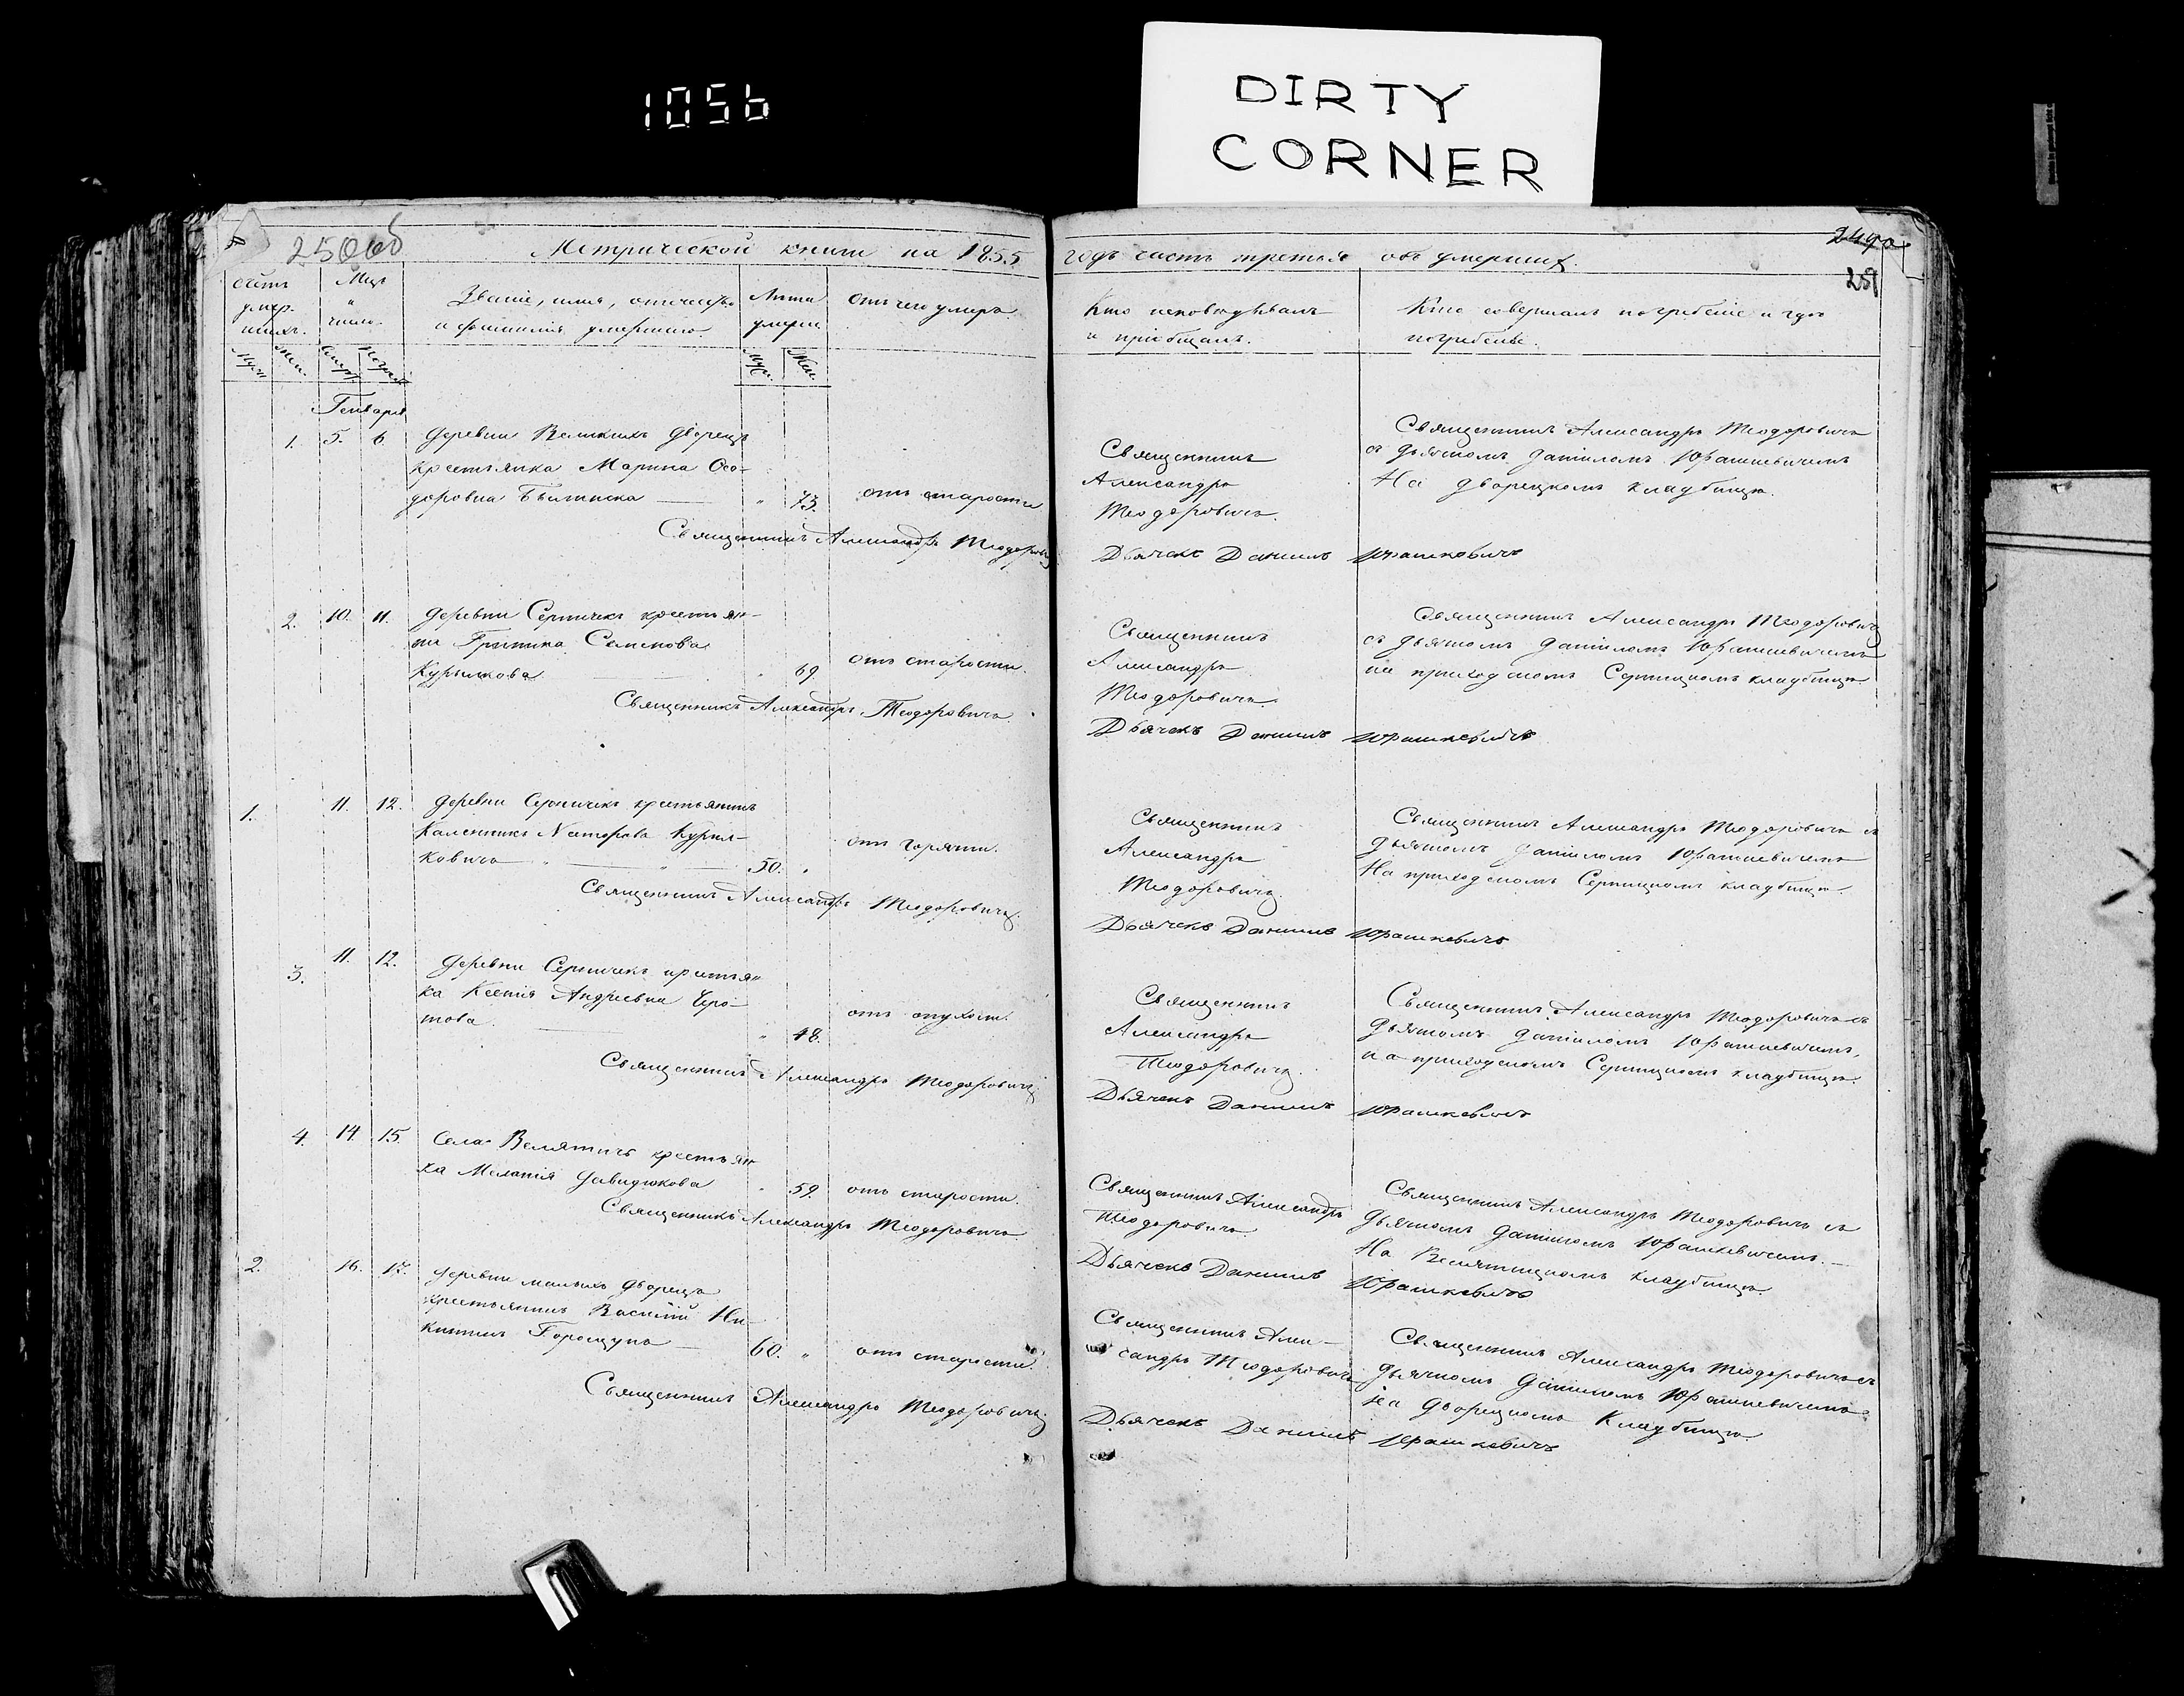 1056
DIRTY
CORNER
250 об
Метрической книги на 1855
годъ часть третья объ умершихъ.
249
251
Счетъ умер-шихъ.
Муж.
Жен.
Мцъ и число.
Смерт.
Погреб.
Званіе, имя, отчество
и фамилія умершаго.
Лѣта
умерш.
Муж.
Жен.
Отъ чего умеръ.
Кто исповѣдывалъ
и пріобщалъ.
Кто совершалъ погребеніе и гдѣ
погребенъ.
Генваря
1. 5. 6. деревни Великихъ Дворецъ
крестьянка Марина Ѳео-
доровна
" 73. отъ старости
Священникъ Александръ Теодоровичъ
Священникъ
Александръ
Теодоровичъ.
Священникъ Александръ Теодоровичъ
съ дьячкомъ Даніиломъ Юрашкевичемъ
На Дворецкомъ кладбищѣ.
Дьячекъ Даниилъ Юрашкевичъ
2. 10. 11. деревни Серничекъ крестьян-
ка Семенова
Курилкова
" 69 отъ старости.
Священникъ Александръ Теодоровичъ.
Священникъ
Александръ
Теодоровичъ.
Священникъ Александръ Теодоровичъ
съ дьячкомъ Даніиломъ Юрашкевичемъ
на приходскомъ Серницкомъ кладбищѣ.
Дьячекъ Даниилъ Юрашкевичъ
1. 11. 12. деревни Серничекъ крестьянинъ
Каленикъ Курил-
ковичъ
50. " отъ горячки.
Священникъ Александръ Теодоровичъ.
Священникъ
Александръ
Теодоровичъ
Священникъ Александръ Теодоровичъ съ
дьячкомъ Даніиломъ Юрашкевичемъ
На приходскомъ Серницкомъ кладбищѣ.
Дьячекъ Даниилъ Юрашкевичъ
3. 11. 12. деревни Серничекъ крестьян-
ка Ксенія Андреевна
" 48. отъ опухоли.
Священникъ Александръ Теодоровичъ
Священникъ
Александръ
Теодоровичъ.
Священникъ Александръ Теодоровичъ съ
дьячкомъ Даніиломъ Юрашкевичемъ,
на приходскомъ Серницкомъ кладбищѣ.
Дьячекъ Даниилъ Юрашкевичъ
4. 14. 15. Села Велятичъ крестьян-
ка Меланія Давидюкова
" 59. отъ старости.
Священникъ Александръ Теодоровичъ
Священникъ Александръ
Теодоровичъ
Священникъ Александръ Теодоровичъ съ
дьячкомъ Даніиломъ Юрашкевичемъ.
На Велятицкомъ кладбищѣ.
Дьячекъ Даниилъ Юрашкевичъ
2. 16. 17. деревни малыхъ Дворецъ
крестьянинъ Василій Ни-
китинъ
60. " отъ старости.
Священникъ Александръ Теодоровичъ
Священникъ Алек-
сандръ Теодоровичъ
Священникъ Александръ Теодоровичъ съ
дьячкомъ Даніиломъ Юрашкевичемъ
на Дворецкомъ Кладбищѣ.
Дьячекъ Даниилъ Юрашкевичъ